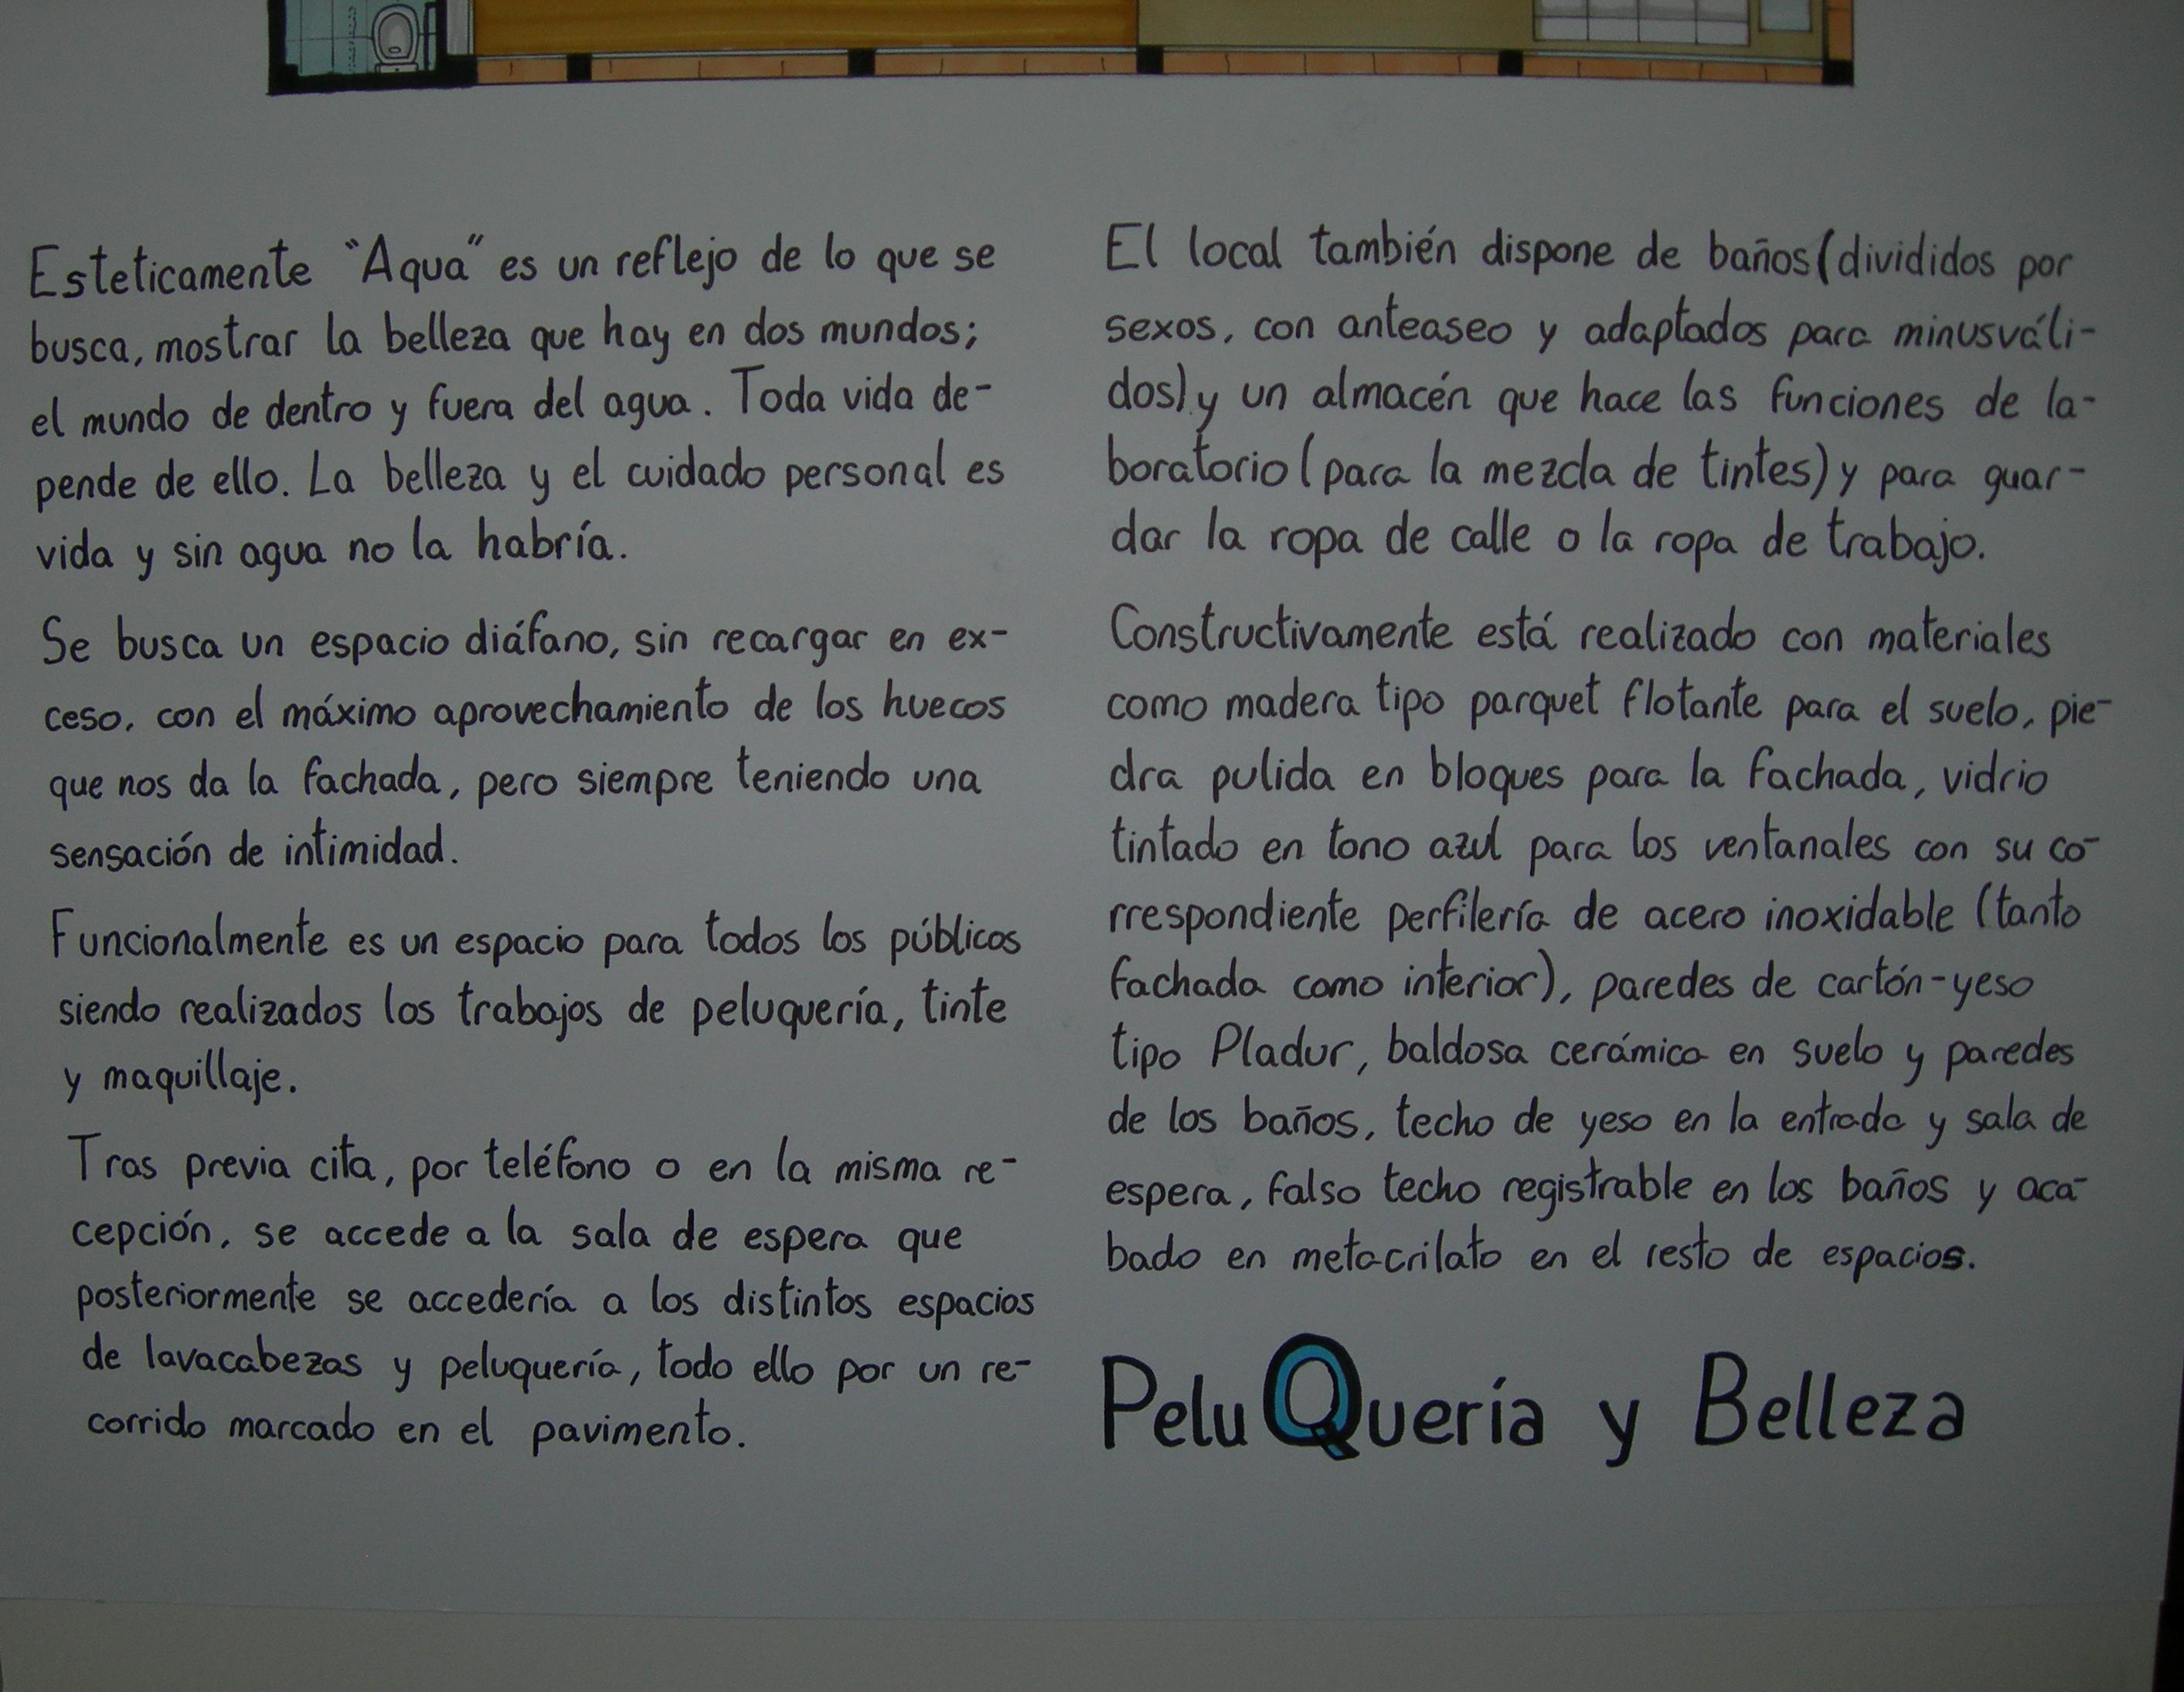 Esteticamente "Aqua" es un reflejo de lo que se
busca, mostrar la belleza que hay en dos mundos;
el mundo de dentro y fuera del agua. Toda vida de-
pende de ello. La belleza y el cuidado personal es
vida y sin agua no la habría.
Se busca un espacio diáfano, sin recargar en ex-
ceso, con el máximo aprovechamiento de los huecos
que nos da la fachada, pero siempre teniendo una
sensación de intimidad.
Funcionalmente es un espacio para todos los públicos
siendo realizados los trabajos de peluquería, tinte
y maquillaje.
Tras previa cita, por teléfono o en la misma re-
cepción, se accede a la sala de espera que
posteriormente se accedería a los distintos espacios
de lavacabezas y peluquería, todo ello por un re-
corrido marcado en el pavimento.
El local también dispone de baños (divididos por
sexos, con anteaseo y adaptados para minusváli-
dos) y un almacén que hace las funciones de la-
boratorio (para la mezcla de tintes) y para guar-
dar la ropa de calle o la ropa de trabajo.
Constructivamente está realizado con materiales
como madera tipo parquet flotante para el suelo, pie-
dra pulida en bloques para la fachada, vidrio
tintado en tono azul para los ventanales con su co-
rrespondiente perfilería de acero inoxidable (tanto
fachada como interior), paredes de cartón-yeso
tipo Pladur, baldosa cerámica en suelo y paredes
de los baños, techo de yeso en la entrada y sala de
espera, falso techo registrable en los baños y aca-
bado en metacrilato en el resto de espacios.
PeluQuería y Belleza